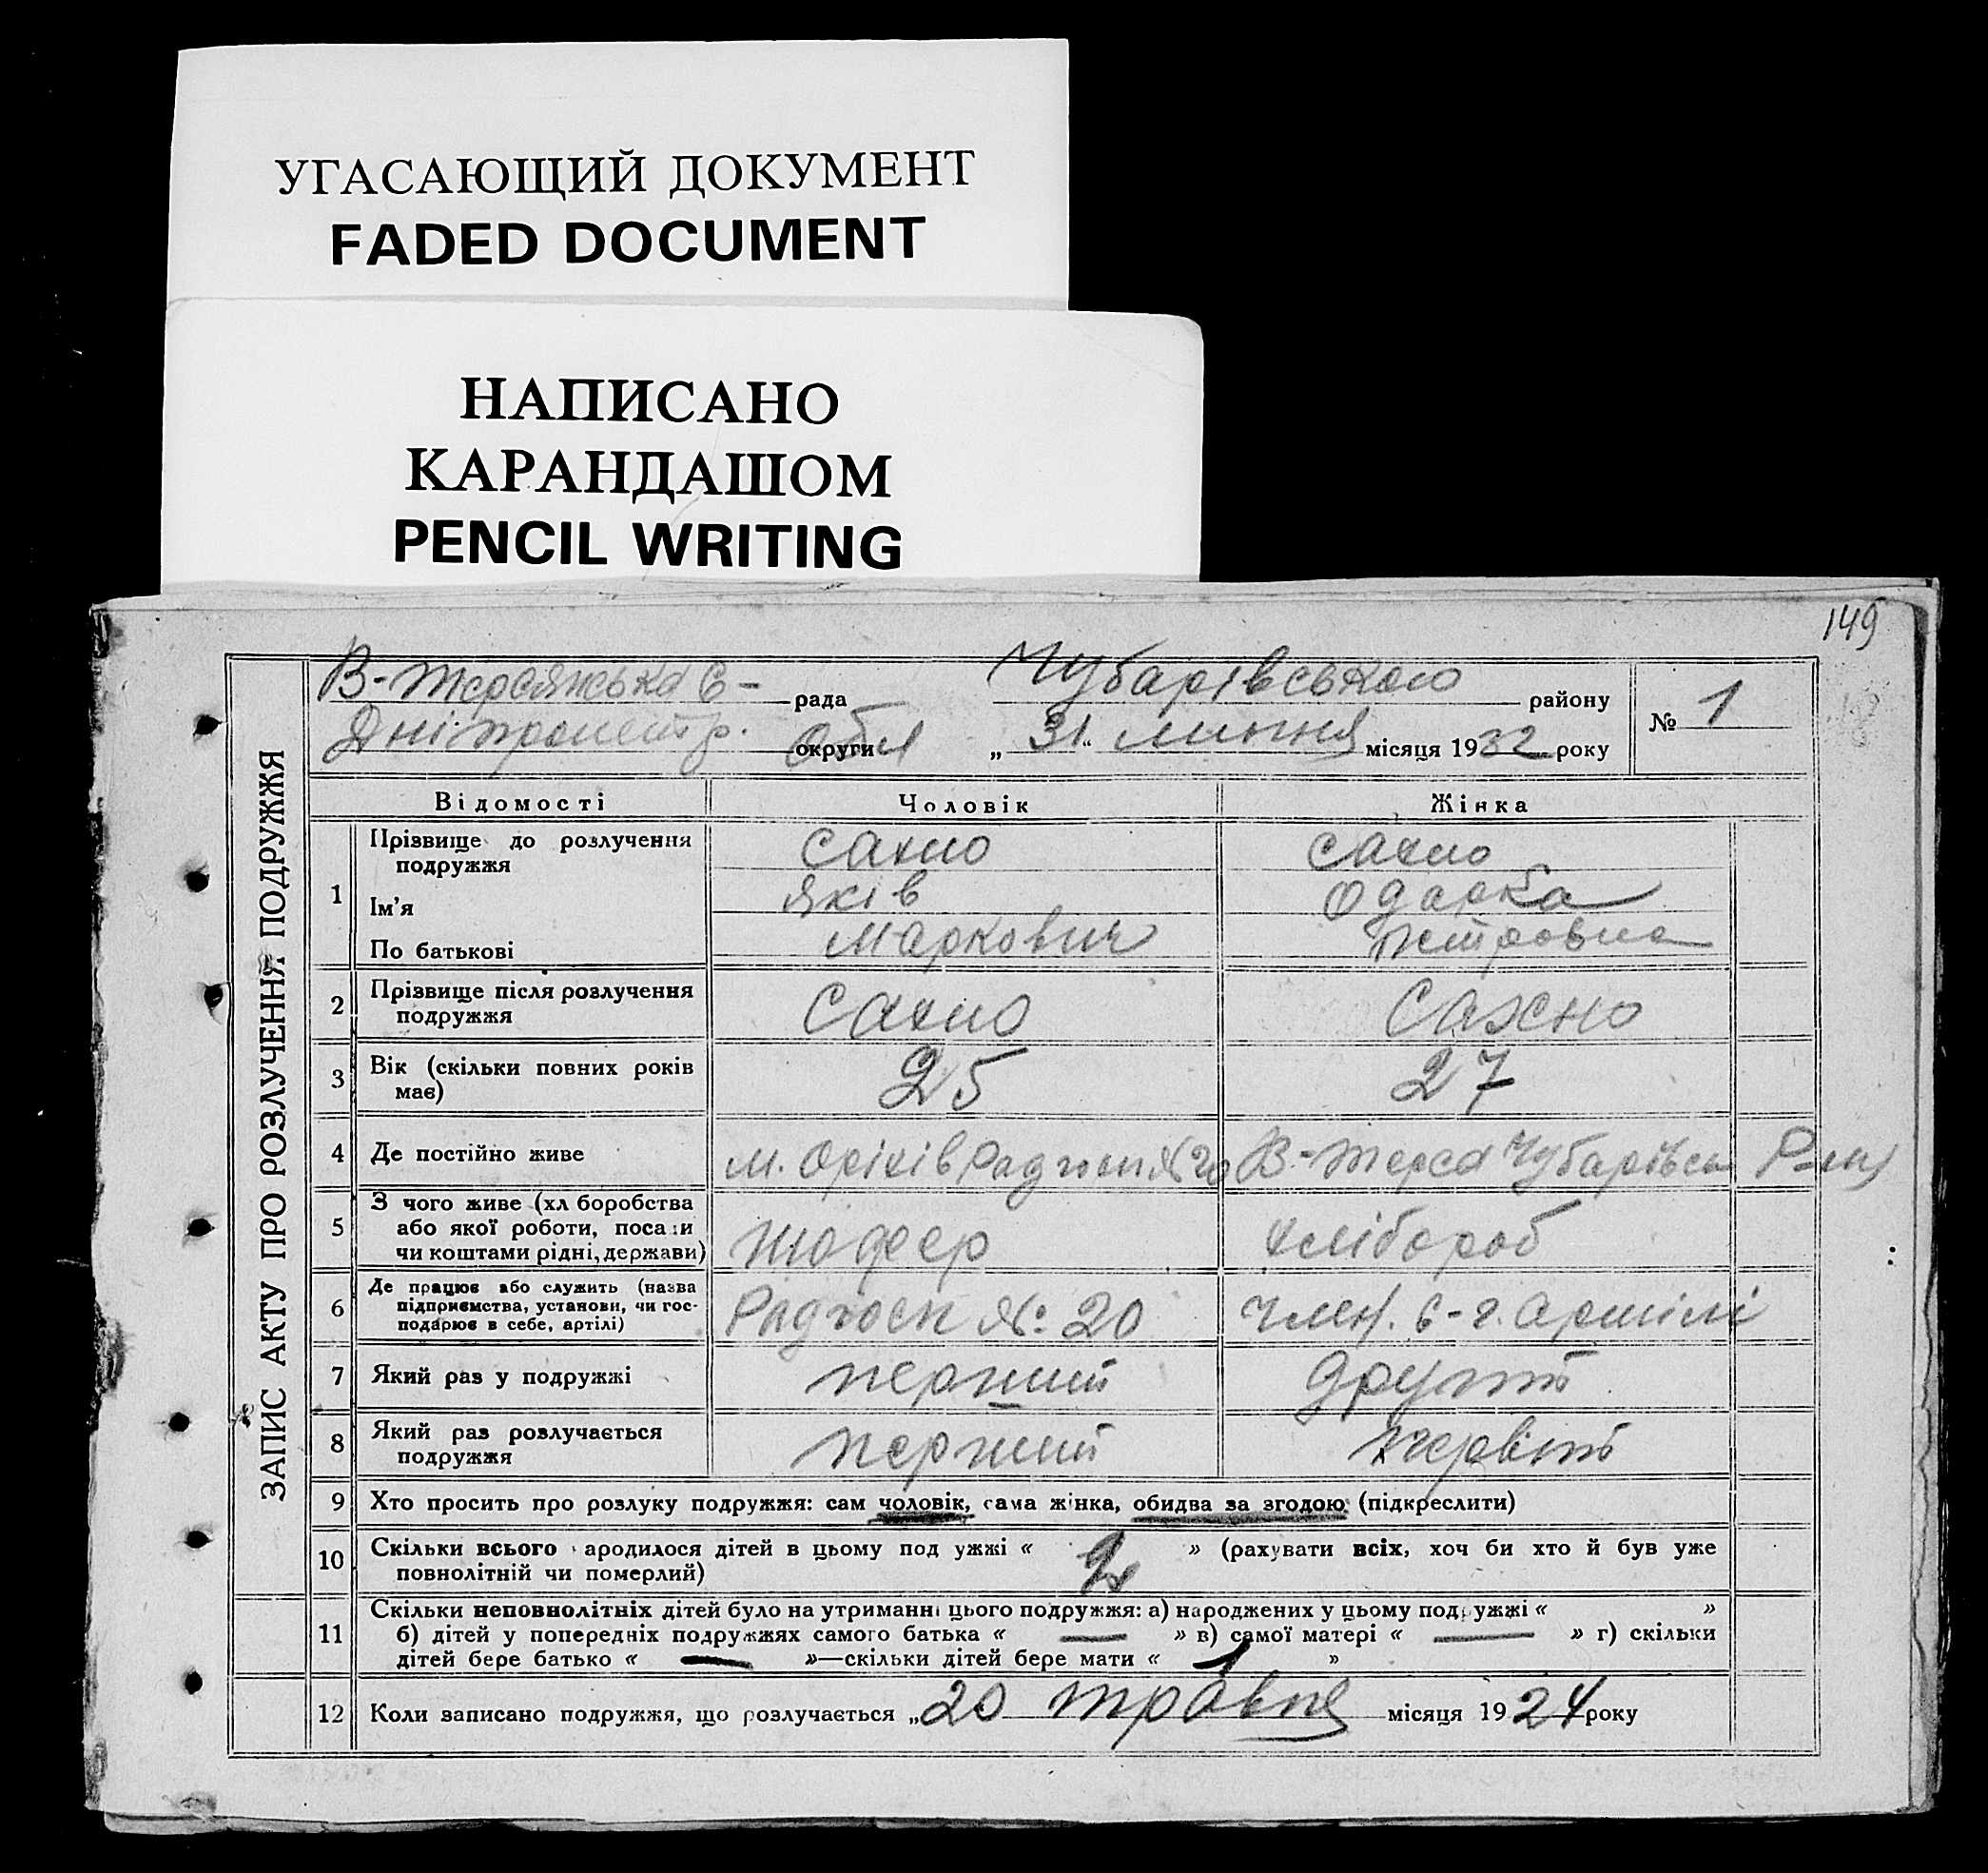 УГАСАЮЩИЙ ДОКУМЕНТ
FADED DOCUMENT
НАПИСАНО
КАРАНДАШОМ
PENCIL WRITING
149
ЗАПИС АКТУ ПРО РОЗЛУЧЕННЯ ПОДРУЖЖЯ
В-Терсянська с- рада Чубарівського району
Дніпропетр. округи Обл „ 31 “ липня місяця 1932 року
№ 1
Відомості Чоловік Жінка
1 Прізвище до розлучення подружжя Сахно Сахно
Ім'я Яків Одарка
По батькові Маркович Петровна
2 Прізвище після розлучення подружжя Сахно Сахно
3 Вік (скільки повних років має) 25 27
4 Де постійно живе м. Оріхів Радгосп №20 В-Терса Чубарівськ Р-ну
5 З чого живе (хл боробства або якої роботи, поса и чи коштами рідні, держави) шофер хлібороб
6 Де працює або служить (назва підприємства, установи, чи господарює в себе, артілі) Радгосп №: 20 член. с-г. артілі
7 Який раз у подружжі перший
8 Який раз розлучається подружжя перший
9 Хто просить про розлуку подружжя: сам чоловік, сама жінка, обидва за згодою (підкреслити)
10 Скільки всього ародилося дітей в цьому под ужжі « 2 » (рахувати всіх, хоч би хто й був уже
повнолітній чи померлий)
11 Скільки неповнолітніх дітей було на утриманні цього подружжя: а) народжених у цьому подружжі « »
б) дітей у попередніх подружжях самого батька « — » в) самої матері « — » г) скільки
дітей бере батько « — »—скільки дітей бере мати « 1 »
12 Коли записано подружжя, що розлучається „ 20 травня місяця 1924 року